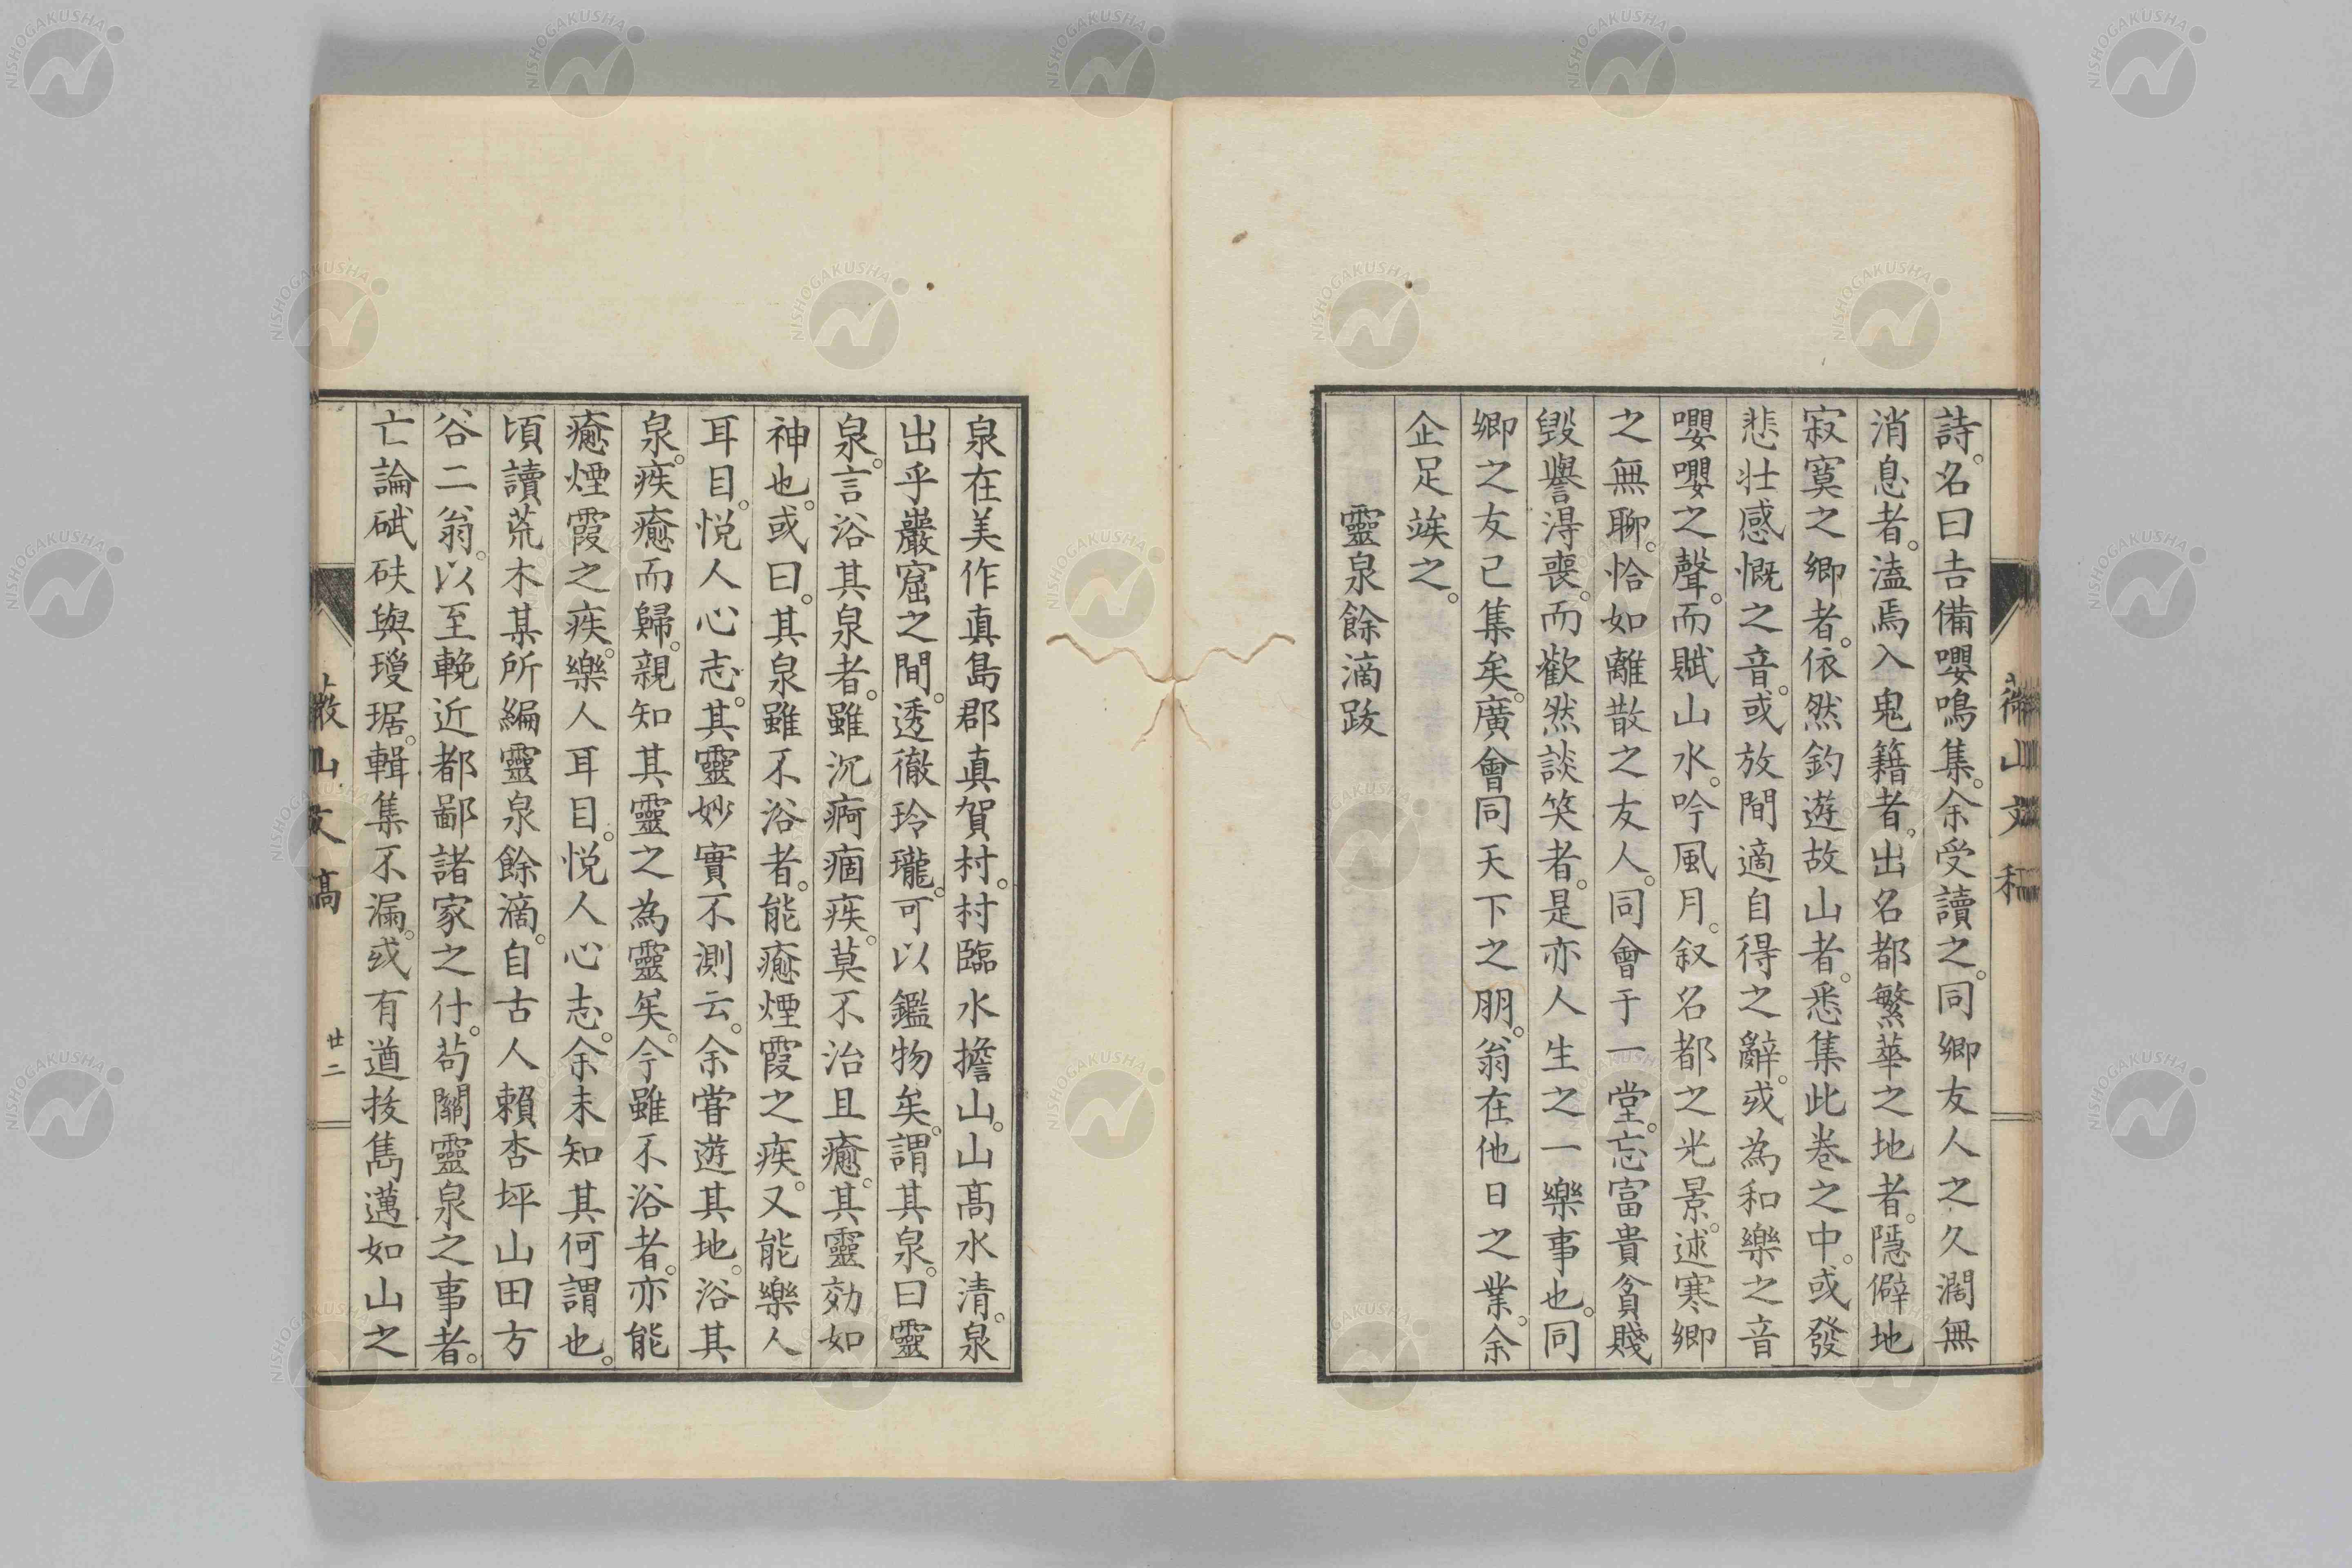 詩。名曰吉備嚶鳴集。余受讀之。同鄉友人之久濶無
消息者。溘焉入鬼籍者。出名都繁華之地者。隱僻地
寂寞之鄉者。依然釣遊故山者。悉集此卷之中。或發
悲壯感慨之音。或放間適自得之辭。或為和樂之音
嚶嚶之聲。而賦山水。吟風月。叙名都之光景。述寒鄉
之無聊。恰如離散之友人。同會于一堂。忘富貴貧賤
毀譽淂喪。而歡然談笑者。是亦人生之一樂事也。同
鄉之友已集矣。廣會同天下之朋。翁在他日之業。余
企足竢之。
靈泉餘滴跋
泉在美作真島郡真賀村。村臨水擔山。山高水清。泉
出乎巖窟之間。透徹玲瓏。可以鑑物矣。謂其泉。曰靈
泉。言浴其泉者。雖沉痾痼疾。莫不治且癒。其靈効如
神也。或曰。其泉雖不浴者。能癒煙霞之疾。又能樂人
耳目。悅人心志。其靈妙實不測云。余嘗遊其地。浴其
泉。疾癒而歸。親知其靈之為靈矣。今雖不浴者。亦能
癒煙霞之疾。樂人耳目。悅人心志。余未知其何謂也。
頃讀荒木某所編靈泉餘滴。自古人賴杏坪山田方
谷二翁。以至輓近都鄙諸家之什。苟關靈泉之事者。
亡論碔砆與瓊琚。輯集不漏。或有遒拔雋邁如山之
山文稿
廿二